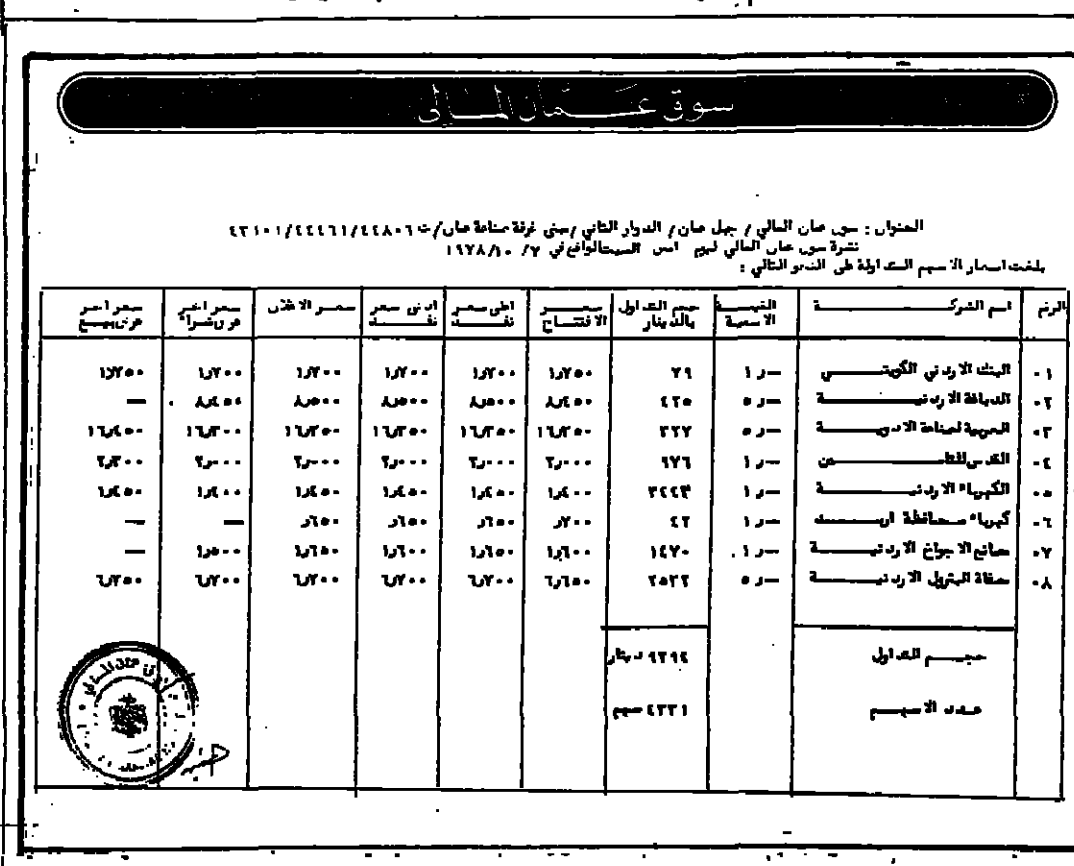 سوق عمان المالي
العنوان : سوق عمان المالي / جبل عمان / الدوار الثاني / مبنى غرفة صناعة عمان / ت ٤٤٨٠٦ / ٤٤٤٦١ / ٤٣١٠١
نشرة سوق عمان المالي ليوم امس السبت الواقع في ٧ / ١٠ / ١٩٧٨
بلغت اسعار الاسهم المتداولة على النحو التالي :
الرقم اسم الشركة القيمة الاسمية حجم التداول بالدينار سعر الافتتاح اعلى سعر نفذ ادنى سعر نفذ سعر الاغلاق سعر اخر عرض شراء سعر اخر عرض بيع
١٠ البنك الاردني الكويتي ١ر— ٧٩ ١ر٧٥٠ ١ر٧٠٠ ١ر٧٠٠ ١ر٧٠٠ ١ر٧٠٠ ١ر٧٥٠
٢٠ الدباغة الاردنية ٥ر— ٤٢٥ ٨ر٤٥٠ ٨ر٥٠٠ ٨ر٥٠٠ ٨ر٥٠٠ ٨ر٤٥٠ —
٣٠ العربية لصناعة الادوية ٥ر— ١٦ر٣٠٠ ١٦ر٤٥٠
٤٠ القدس للتامين ١ر— ٩٧٦ ٢ر٠٠٠ ٢ر٠٠٠ ٢ر٠٠٠ ٢ر٠٠٠ ٢ر٠٠٠ ٢ر٣٠٠
٥٠ الكهرباء الاردنية ١ر— ٣٤٤٣ ١ر٤٠٠ ١ر٤٥٠ ١ر٤٥٠ ١ر٤٥٠ ١ر٤٠٠ ١ر٤٥٠
٦٠ كهرباء محافظة اربد ١ر— ٤٢ ر٧٠٠ ر٦٥٠ ر٦٥٠ ر٦٥٠ — —
٧٠ مصانع الاجواخ الاردنية ١ر— ١٤٧٠ ١ر٦٠٠ ١ر٦٥٠ ١ر٦٠٠ ١ر٦٥٠ ١ر٥٠٠ —
٨٠ مصفاة البترول الاردنية ٥ر— ٢٥٣٢ ٦ر٦٥٠ ٦ر٧٠٠ ٦ر٧٠٠ ٦ر٧٠٠ ٦ر٧٠٠ ٦ر٧٥٠
حجم التداول ٩٢٩٤ دينار
عدد الاسهم ٤٣٣١ سهم